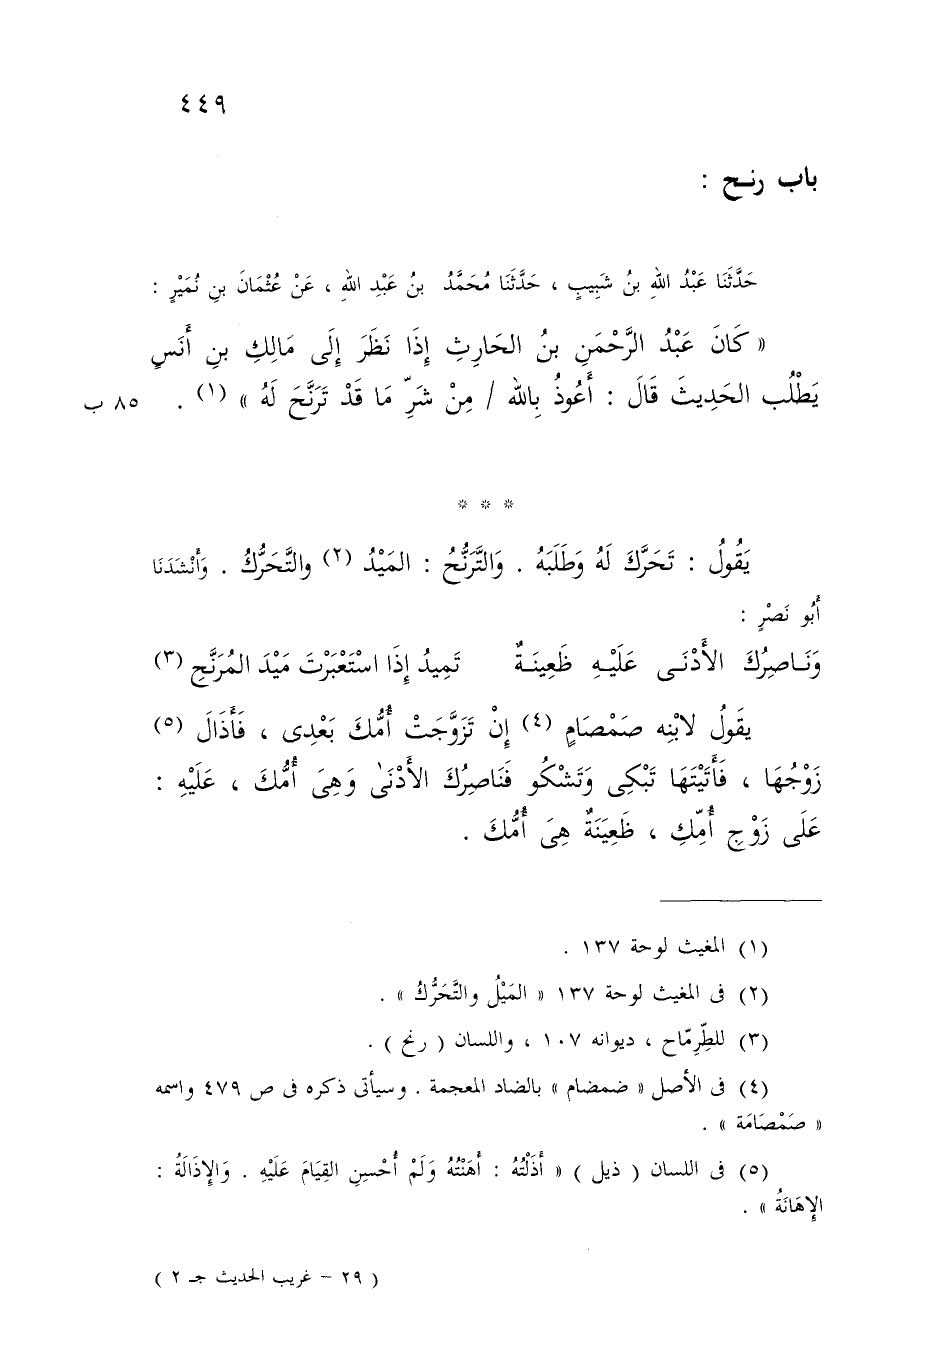 ٤٤٩
باب رنـح :
حَدَّثَنَا عَبْدُ اللهِ بنُ شَبِيبٍ ، حَدَّثَنَا مُحَمَّدُ بنُ عَبْدِ اللهِ ، عَنْ عُثْمَانَ بنِ نُمَيْرٍ :
« كَانَ عَبْدُ الرَّحْمَنِ بنُ الحَارِثِ إِذَا نَظَرَ إِلَى مَالِكِ بنِ أَنَسٍ
يَطْلُب الحَدِيثَ قَالَ : أَعُوذُ بِالله / مِنْ شَرِّ مَا قَدْ تَرَنَّحَ لَهُ » (١) . ٨٥ ب
* * *
يَقُولُ : تَحَرَّكَ لَهُ وَطَلَبَهُ . وَالتَّرَنُّحُ : المَيْدُ (٢) والتَّحَرُّكُ . وَأَنْشَدَنَا
أَبُو نَصْرٍ :
وَنَـاصِرُكَ الأَدْنَـى عَلَيْـهِ ظَعِينَـةٌ تَمِيدُ إِذَا اسْتَعْبَرْتَ مَيْدَ المُرَنَّحِ (٣)
يقُولُ لابْنِه صَمْصَامٍ (٤) إِنْ تَزَوَّجَتْ أُمُّكَ بَعْدِى ، فَأَذَالَ (٥)
زَوْجُهَا ، فَأَتَيْتَهَا تَبْكِى وَتَشْكُو فَنَاصِرُكَ الأَدْنَىٰ وَهِىَ أُمُّكَ ، عَلَيْهِ :
عَلَى زَوْجِ أُمِّكِ ، ظَعِيَنَةٌ هِىَ أُمُّكَ .
(١) المغيث لوحة ١٣٧ .
(٢) فى المغيث لوحة ١٣٧ « المَيْلُ والتَّحَرُّكُ » .
(٣) للطِّرِمّاح ، ديوانه ١٠٧ ، واللسان ( رنح ) .
(٤) فى الأصل « ضمضام » بالضاد المعجمة . وسيأتى ذكره فى ص ٤٧٩ واسمه
« صَمْصَامَة » .
(٥) فى اللسان ( ذيل ) « أَذَلْتُهُ : أَهَنْتُهُ وَلَمْ أُحْسِنِ القِيَامَ عَلَيْهِ . وَالإِذَالَةُ :
الإِهَانَةُ » .
( ٢٩ – غريب الحديث جـ ٢ )